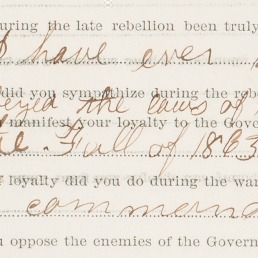 uring the late rebellion been truly
I have ever
did you sympathize during the rebe
eyed the laws of
manifest your loyalty to the Gover
Fall of 1863
loyalty did you do during the wa
command
u oppose the enemies of the Governm